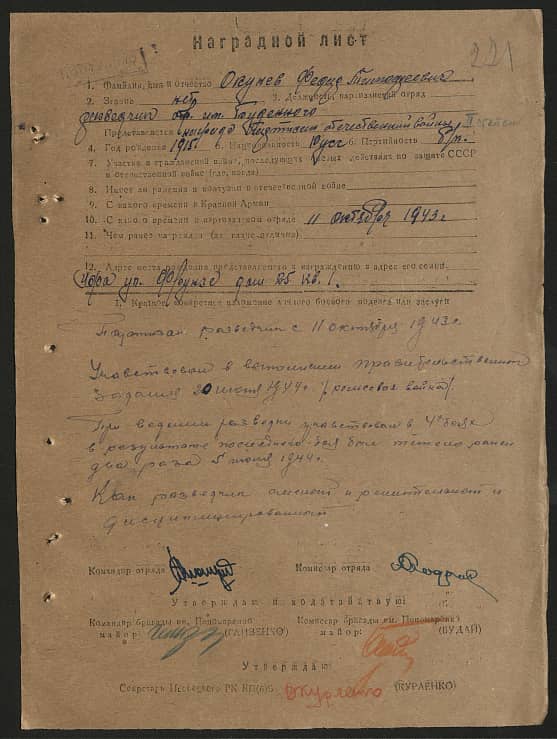 221
Наградной лист
1. Фамилия, имя и отчество Окунев Федис Тимофеевич
2. Звание нет 3. Должность партизанский отряд
разведчик отр. им. Буденного
Представляется к награде Партизан отечественной войны II степени
4. Год рождения 1915 г. 5. Национальность русс 6. Партийность б/п.
7. Участие в гражданской войне, последующих боевых действиях по защите СССР
и отечественной войне (где, когда)
8. Имеет ли ранения и контузии в отечественной войне
9. С какого времени в Красной Армии
10. С какого времени в партизанском отряде 11 октября 1943 г.
11. Чем ранее награжден (за какие отличия)
12. Адрес места представляемого к награждению и адрес его семьи
ул. Фрунзе дом 25 кв. 1.
1. Краткое, конкретное изложение личного боевого подвига или заслуги
Партизан разведчик с 11 октября 1943 г.
Участвовал в выполнении правительственного
задания 20 июня 1944 г. (рельсовая война).
При ведении разведки участвовал в 4х боях
в результате последнего боя был тяжело ранен
два раза 5 июня 1944 г.
Как разведчик смелост и решительност и
дисциплинированност
Командир отряда Комиссар отряда
Утверждаю и ходатайствую:
Командир бригады им. Пономаренко Комиссар бригады им. Пономаренко
майор: (ГАНЗЕНКО) майор: (БУДАЙ)
Утверждаю:
Секретарь РК КП(б)Б Окурленко (КУРЛЕНКО)